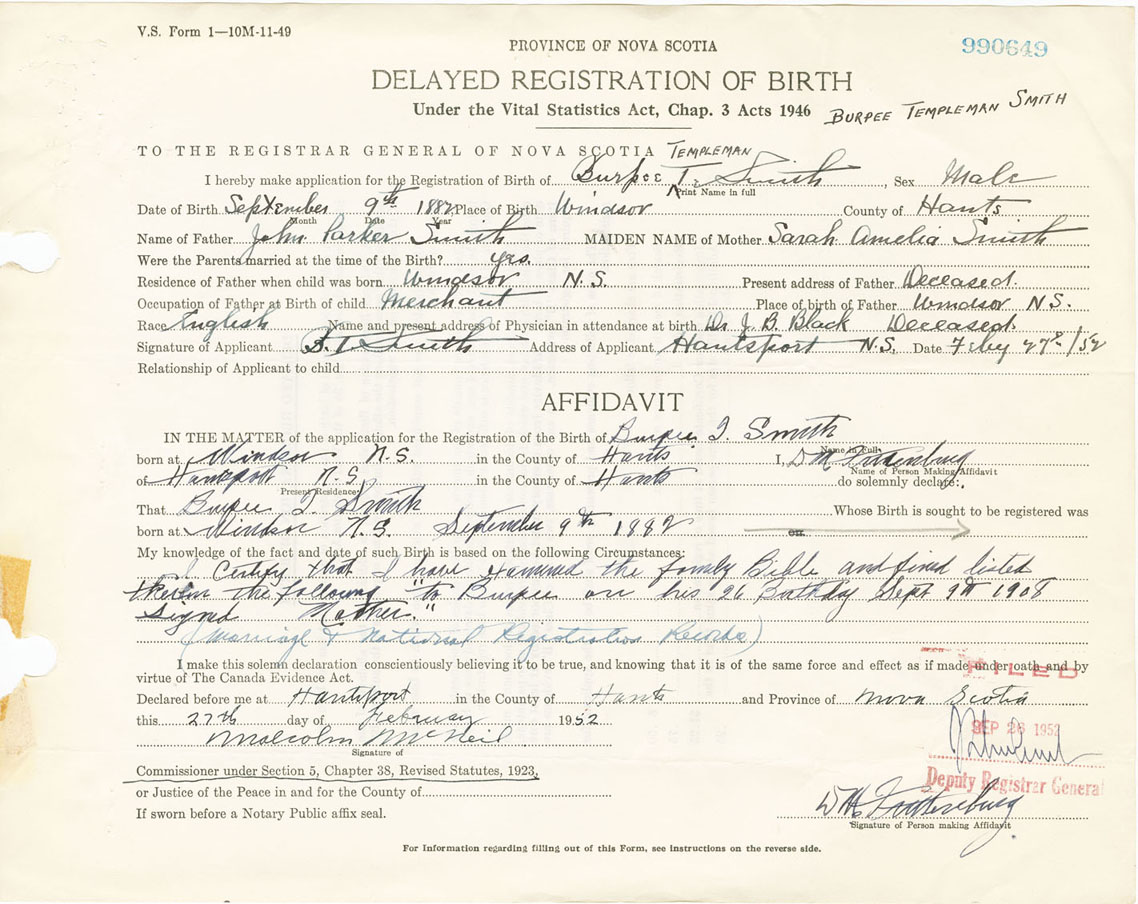 V.S. Form 1—10M-11-49
PROVINCE OF NOVA SCOTIA
990649
DELAYED REGISTRATION OF BIRTH
Under the Vital Statistics Act, Chap. 3 Acts 1946
BURPEE TEMPLEMAN SMITH
TO THE REGISTRAR GENERAL OF NOVA SCOTIA TEMPLEMAN
I hereby make application for the Registration of Birth of Burpee T. Smith, Sex Male
Print Name in full
Date of Birth September 9th 1882 Place of Birth Windsor County of Hants
Month Date Year
Name of Father John Parker Smith MAIDEN NAME of Mother Sarah Amelia Smith
Were the Parents married at the time of the Birth? yes.
Residence of Father when child was born Windsor N.S. Present address of Father Deceased.
Occupation of Father at Birth of child Merchant Place of birth of Father Windsor N.S.
Race English Name and present address of Physician in attendance at birth Dr J. B. Black Deceased.
Signature of Applicant B. T. Smith Address of Applicant Hantsport N.S. Date Feby 27 /52
Relationship of Applicant to child
AFFIDAVIT
IN THE MATTER of the application for the Registration of the Birth of Burpee T. Smith
Name in Full
born at Windsor N.S. in the County of Hants I,
Name of Person Making Affidavit
of Hantsport N.S. in the County of Hants do solemnly declare:
Present Residence
That Burpee T. Smith Whose Birth is sought to be registered was
born at Windsor N.S. September 9th 1882 on
My knowledge of the fact and date of such Birth is based on the following Circumstances:
I Certify that I have examined the family Bible and find listed
therein the following "to Burpee on his 26 Birthday Sept 9th 1908
signed Mother."
(Marriage & National Registration Records)
I make this solemn declaration conscientiously believing it to be true, and knowing that it is of the same force and effect as if made under oath and by
virtue of The Canada Evidence Act.
FILED
Declared before me at Hantsport in the County of Hants and Province of Nova Scotia
this 27th day of February 1952
SEP 26 1952
Malcolm McNeil
Signature of
Commissioner under Section 5, Chapter 38, Revised Statutes, 1923,
Deputy Registrar General
or Justice of the Peace in and for the County of
If sworn before a Notary Public affix seal.
Signature of Person making Affidavit
For Information regarding filling out of this Form, see instructions on the reverse side.